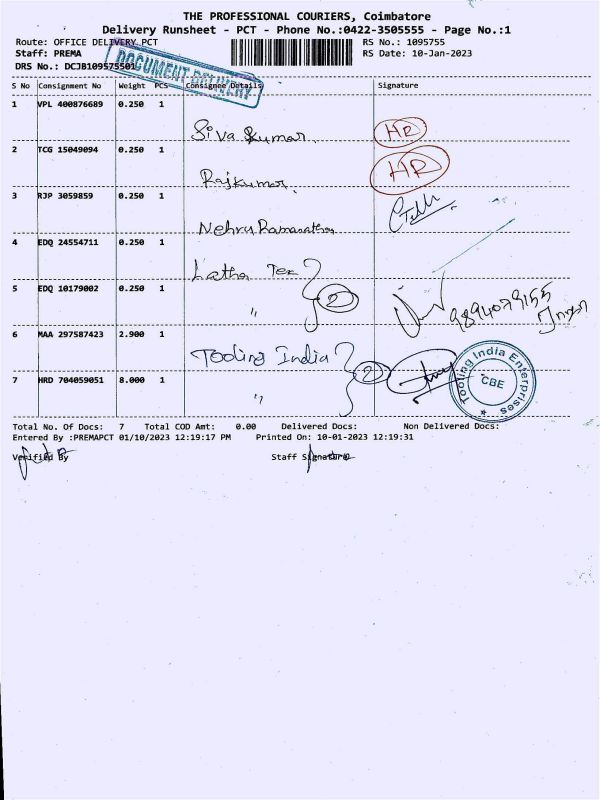 THE PROFESSIONAL COURIERS, Coimbatore
Delivery Runsheet - PCT - Phone No.:0422-3505555 - Page No.:1
Route: OFFICE DELIVERY PCT RS No.: 1095755
Staff: PREMA RS Date: 10-Jan-2023
DRS No.: DCJB109575501
DOCUMENT DELIVERY
S No Consignment No Weight PCS Consignee Details Signature
1 VPL 400876689 0.250 1
Siva Kumar HR
2 TCG 15049094 0.250 1
Rajkumar HR
3 RJP 3059859 0.250 1
Nehru Ramanathan
4 EDQ 24554711 0.250 1
Latha Tex
5 EDQ 10179002 0.250 1
" 2 9894079155
6 MAA 297587423 2.900 1
Tooling India 2
Tooling India Enterprises
CBE
7 HRD 704059051 8.000 1
"
Total No. Of Docs: 7 Total COD Amt: 0.00 Delivered Docs: Non Delivered Docs:
Entered By :PREMAPCT 01/10/2023 12:19:17 PM Printed On: 10-01-2023 12:19:31
Verified By Staff Signature